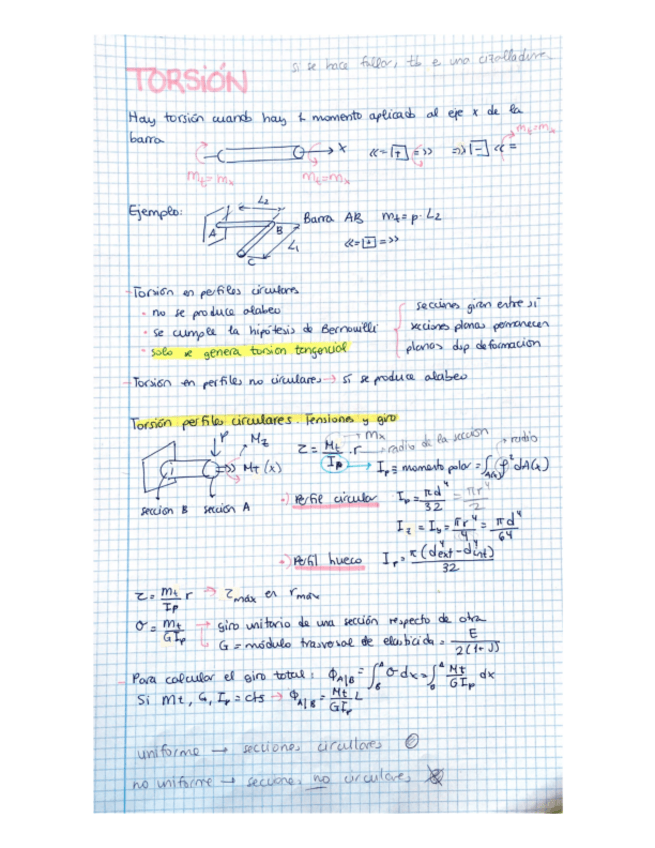 si se hace fallar, tb e una cizalladura
TORSIÓN
Hay torsión cuando hay 1 momento aplicado al eje x de la
barra
x
Mt = Mx
Mt = Mx
<<= + =>>
=>> - <<=
Mt = Mx
Ejemplo:
L2
A
B
C
L1
Barra AB Mt = p · L2
<<= + =>>
- Torsión en perfiles circulares
· no se produce alabeo
· se cumple la hipótesis de Bernouilli
· solo se genera torsion tangencial
secciones giran entre sí
secciones planas permanecen
planas dsp deformación
- Torsión en perfiles no circulares → sí se produce alabeo
Torsión perfiles circulares. Tensiones y giro
P
Mz
Mt (x)
sección B sección A
τ = Mt/Ip · r
Mx
radio de la sección
radio
Ip ≡ momento polar = ∫A(x) ρ² dA(x)
·) Perfil circular Ip = πd⁴/32 = πr⁴/2
Iz = Iy = πr⁴/4 = πd⁴/64
·) Perfil hueco Ip = π(d⁴ext - d⁴int)/32
τ = Mt/Ip r → τmáx en rmáx
θ = Mt/GIp → giro unitario de una sección respecto de otra
G = módulo trasversal de elasticida = E/2(1+ν)
- Para calcular el giro total: ΦA|B = ∫ᴬB θ dx = ∫ᴬ0 Mt/GIp dx
Si Mt, G, Ip = cts → ΦA|B = Mt/GIp L
uniforme → secciones circulares
no uniforme → secciones no circulares